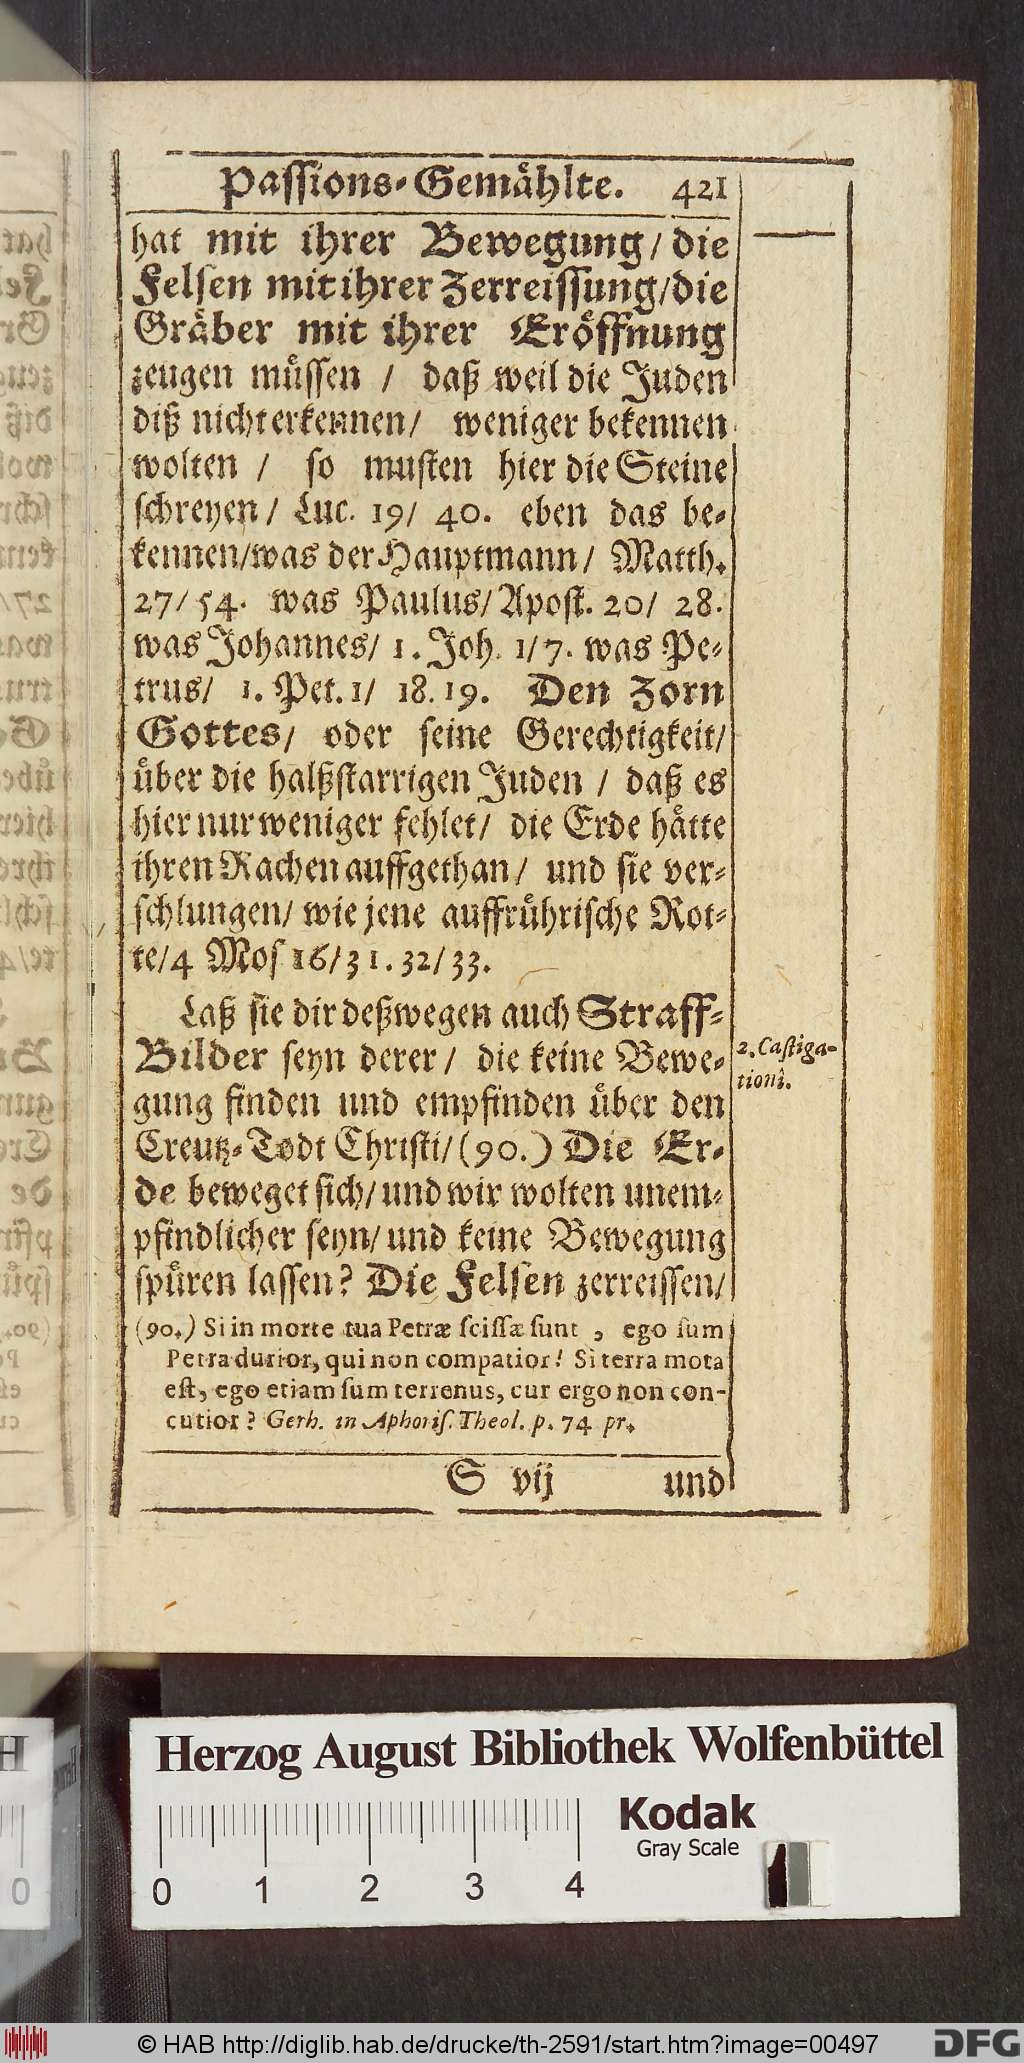 Passions-Gemählte. 421
hat mit ihrer Bewegung / die
Felsen mit ihrer Zerreissung / die
Gräber mit ihrer Eröffnung
zeugen müssen / daß weil die Juden
diß nicht erkennen / weniger bekennen
wolten / so musten hier die Steine
schreyen / Luc. 19 / 40. eben das be-
kennen / was der Hauptmann / Matth.
27 / 54. was Paulus / Apost. 20 / 28.
was Johannes / 1. Joh. 1 / 7. was Pe-
trus / 1. Pet. 1 / 18. 19. Den Zorn
Gottes / oder seine Gerechtigkeit /
über die halßstarrigen Juden / daß es
hier nur weniger fehlet / die Erde hätte
ihren Rachen auffgethan / und sie ver-
schlungen / wie jene auffrührische Rot-
te / 4 Mos 16 / 31. 32 / 33.
Laß sie dir deßwegen auch Straff-
Bilder seyn derer / die keine Bewe-
gung finden und empfinden über den
Creutz-Todt Christi / (90.) Die Er-
de beweget sich / und wir wolten unem-
pfindlicher seyn / und keine Bewegung
spüren lassen? Die Felsen zerreissen /
2. Castiga-
tioni.
(90.) Si in morte tua Petræ scissæ sunt, ego sum
Petra durior, qui non compatior! Si terra mota
est, ego etiam sum terrenus, cur ergo non con-
cutior? Gerh. in Aphoris. Theol. p. 74 pr.
S vij und
Herzog August Bibliothek Wolfenbüttel
Kodak
Gray Scale
0 1 2 3 4
H
0
© HAB http://diglib.hab.de/drucke/th-2591/start.htm?image=00497
DFG